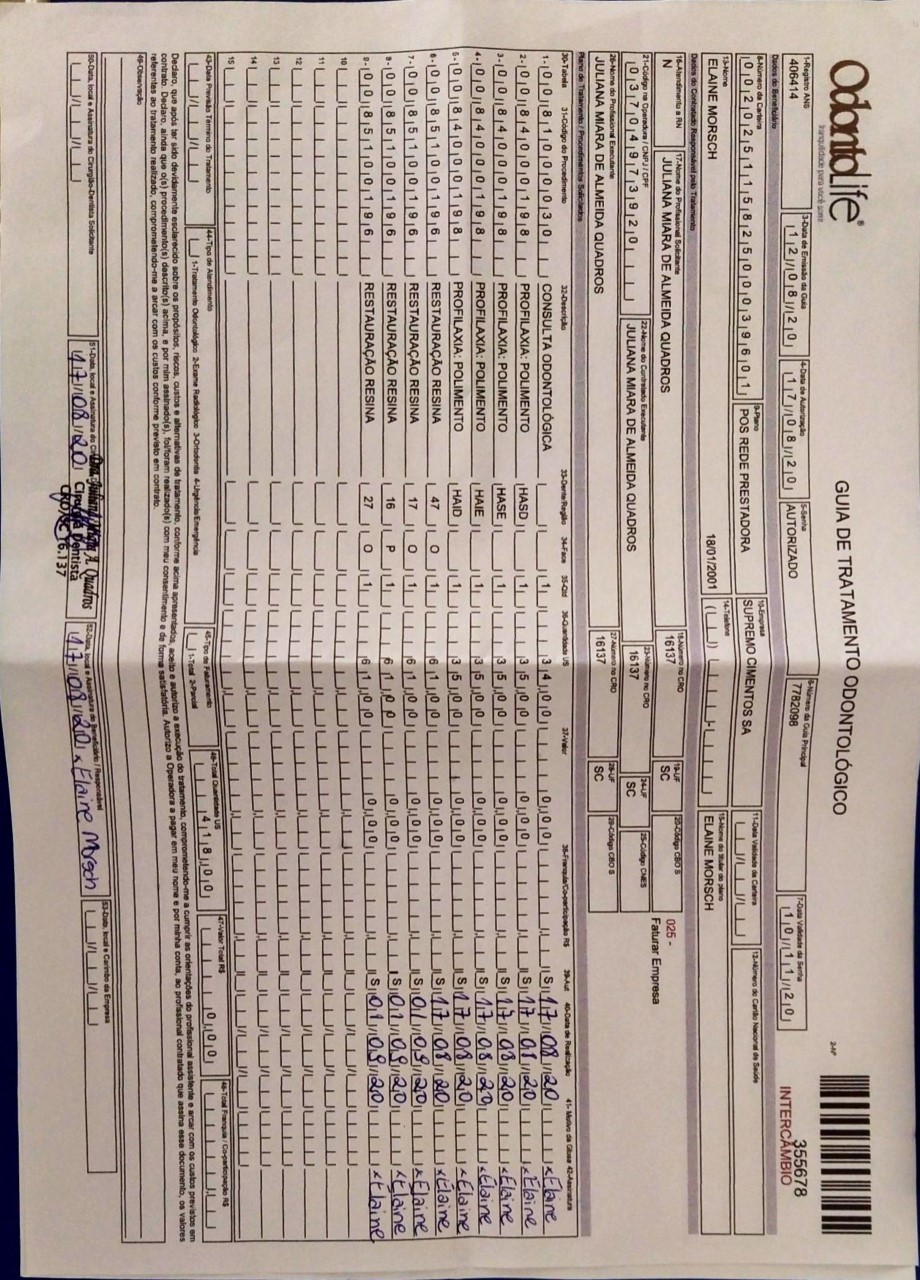 OdontoLife®
tranquilidade para você sorrir
GUIA DE TRATAMENTO ODONTOLÓGICO
2-Nº
355678
INTERCÂMBIO
1-Registro ANS 3-Data de Emissão da Guia 4-Data de Autorização 5-Senha 6-Número da Guia Principal 7-Data Validade da Senha
40614 12/08/20 17/08/20 AUTORIZADO 7782098 10/11/20
Dados do Beneficiário
8-Número da Carteira 9-Plano 10-Empresa 11-Data Validade da Carteira 12-Número do Cartão Nacional de Saúde
00202511582500039601 POS REDE PRESTADORA SUPREMO CIMENTOS SA
13-Nome 14-Telefone 15-Nome do titular do plano
ELAINE MORSCH 18/01/2001 ELAINE MORSCH
Dados do Contratado Responsável pelo Tratamento
16-Atendimento a RN 17-Nome do Profissional Solicitante 18-Número no CRO 19-UF 20-Código CBO S
N JULIANA MIARA DE ALMEIDA QUADROS 16137 SC
025 - Faturar Empresa
21-Código na Operadora / CNPJ / CPF 22-Nome do Contratado Executante 23-Número no CRO 24-UF 25-Código CNES
03704973920 JULIANA MIARA DE ALMEIDA QUADROS 16137 SC
26-Nome do Profissional Executante 27-Número no CRO 28-UF 29-Código CBO S
JULIANA MIARA DE ALMEIDA QUADROS 16137 SC
Plano de Tratamento / Procedimentos Solicitados
30-Tabela 31-Código do Procedimento 32-Descrição 33-Dente/Região 34-Face 35-Qtd 36-Quantidade US 37-Valor 38-Franquia/Co-participação R$ 39-Aut 40-Data de Realização 41- Motivo da Glosa 42-Assinatura
1- 00 81000030 CONSULTA ODONTOLÓGICA 1 34,00 0,00 S 17/08/20 x Elaine
2- 00 84000198 PROFILAXIA: POLIMENTO HASD 1 35,00 0,00 S 17/08/20 x Elaine
3- 00 84000198 PROFILAXIA: POLIMENTO HASE 1 35,00 0,00 S 17/08/20 x Elaine
4- 00 84000198 PROFILAXIA: POLIMENTO HAIE 1 35,00 0,00 S 17/08/20 x Elaine
5- 00 84000198 PROFILAXIA: POLIMENTO HAID 1 35,00 0,00 S 17/08/20 x Elaine
6- 00 85100196 RESTAURAÇÃO RESINA 47 O 1 61,00 0,00 S 17/08/20 x Elaine
7- 00 85100196 RESTAURAÇÃO RESINA 17 O 1 61,00 0,00 S 01/09/20 x Elaine
8- 00 85100196 RESTAURAÇÃO RESINA 16 P 1 61,00 0,00 S 01/09/20 x Elaine
9- 00 85100196 RESTAURAÇÃO RESINA 27 O 1 61,00 0,00 S 01/09/20 x Elaine
10
11
12
13
14
15
43-Data Prevista Término do Tratamento 44-Tipo de Atendimento 45-Tipo de Faturamento 46-Total Quantidade US 47-Valor Total R$ 48-Total Franquia / Co-participação R$
1-Tratamento Odontológico 2-Exame Radiológico 3-Ortodontia 4-Urgência/Emergência 1-Total 2-Parcial 418,00 0,00
Declaro, que após ter sido devidamente esclarecido sobre os propósitos, riscos, custos e alternativas de tratamento, conforme acima apresentados, aceito e autorizo a execução do tratamento, comprometendo-me a cumprir as orientações do profissional assistente e arcar com os custos previstos em
contrato. Declaro, ainda que o(s) procedimento(s) descrito(s) acima, e por mim assinado(s), foi/foram realizado(s) com meu consentimento e de forma satisfatória. Autorizo a Operadora a pagar em meu nome e por minha conta, ao profissional contratado que assina esse documento, os valores
referentes ao tratamento realizado, comprometendo-me a arcar com os custos conforme previsto em contrato.
49-Observação
50-Data, local e Assinatura do Cirurgião-Dentista Solicitante 51-Data, local e Assinatura do 52-Data, local e Assinatura do Beneficiário / Responsável 53-Data, local e Carimbo da Empresa
17/08/20 17/08/20 x Elaine Morsch
Dra. Juliana Miara A. Quadros
Cirurgiã Dentista
CRO/SC 16.137